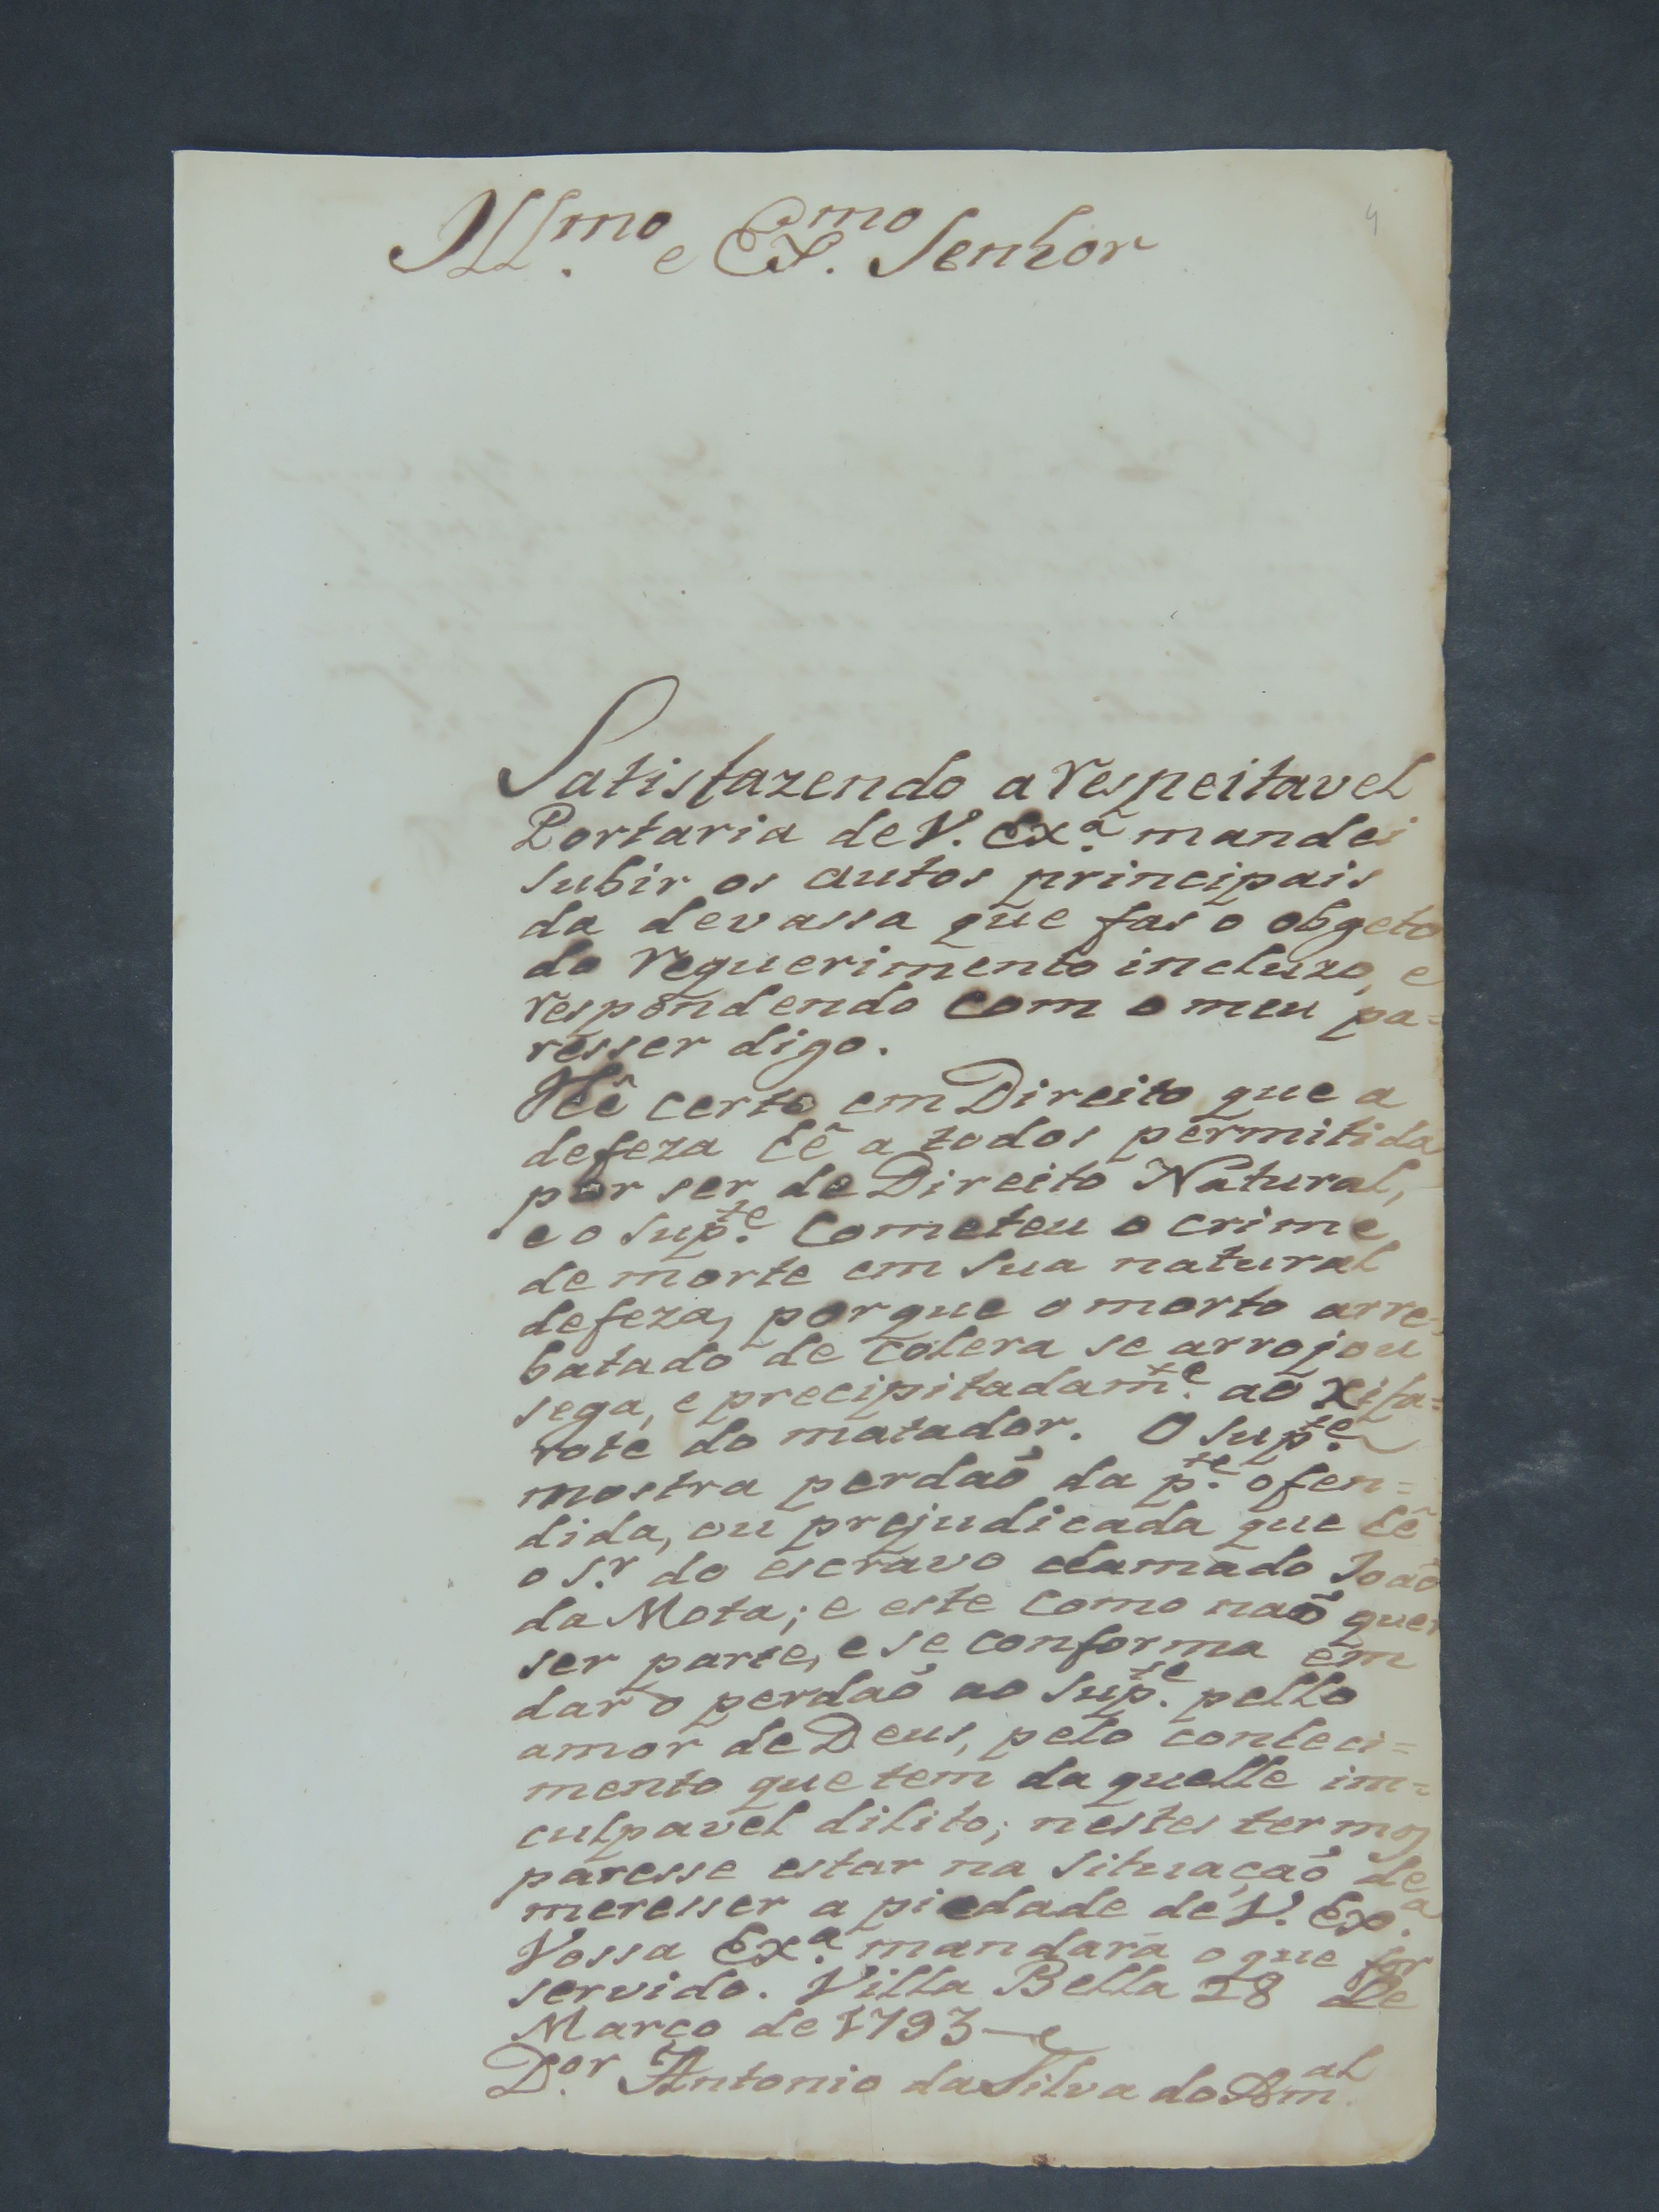 4
Ill.mo e Ex.mo Senhor
Satisfazendo a respeitavel
Portaria de V. Ex.ª mandei
subir os autos principais
da devassa que fas o obgeto
do requerimento incluzo, e
respondendo com o meu pa=
resser digo.
Hê certo em Direito que a
defeza hê a todos permitida
por ser de Direito Natural,
e o Sup.te cometeu o crime
de morte em sua natural
defeza, porque o morto arre=
batado de colera se arrojou
sega, e precipitadam.te ao xifa=
rote do matador. O Sup.te
mostra perdaõ da p.te ofen=
dida, ou prejudicada que hê
o S.r do escravo chamado Joaõ
da Mota; e este como naõ quer
ser parte, e se conforma em
dar o perdaõ ao Sup.te pello
amor de Deus, pelo conheci=
mento que tem da quelle im=
culpavel dilito; nestes termos
paresse estar na situaçaõ de
meresser a piedade de V. Ex.ª
Vossa Ex.ª mandará o que for
servido. Villa Bella 28 de
Março de 1793
D.or Antonio da Silva do Am.al